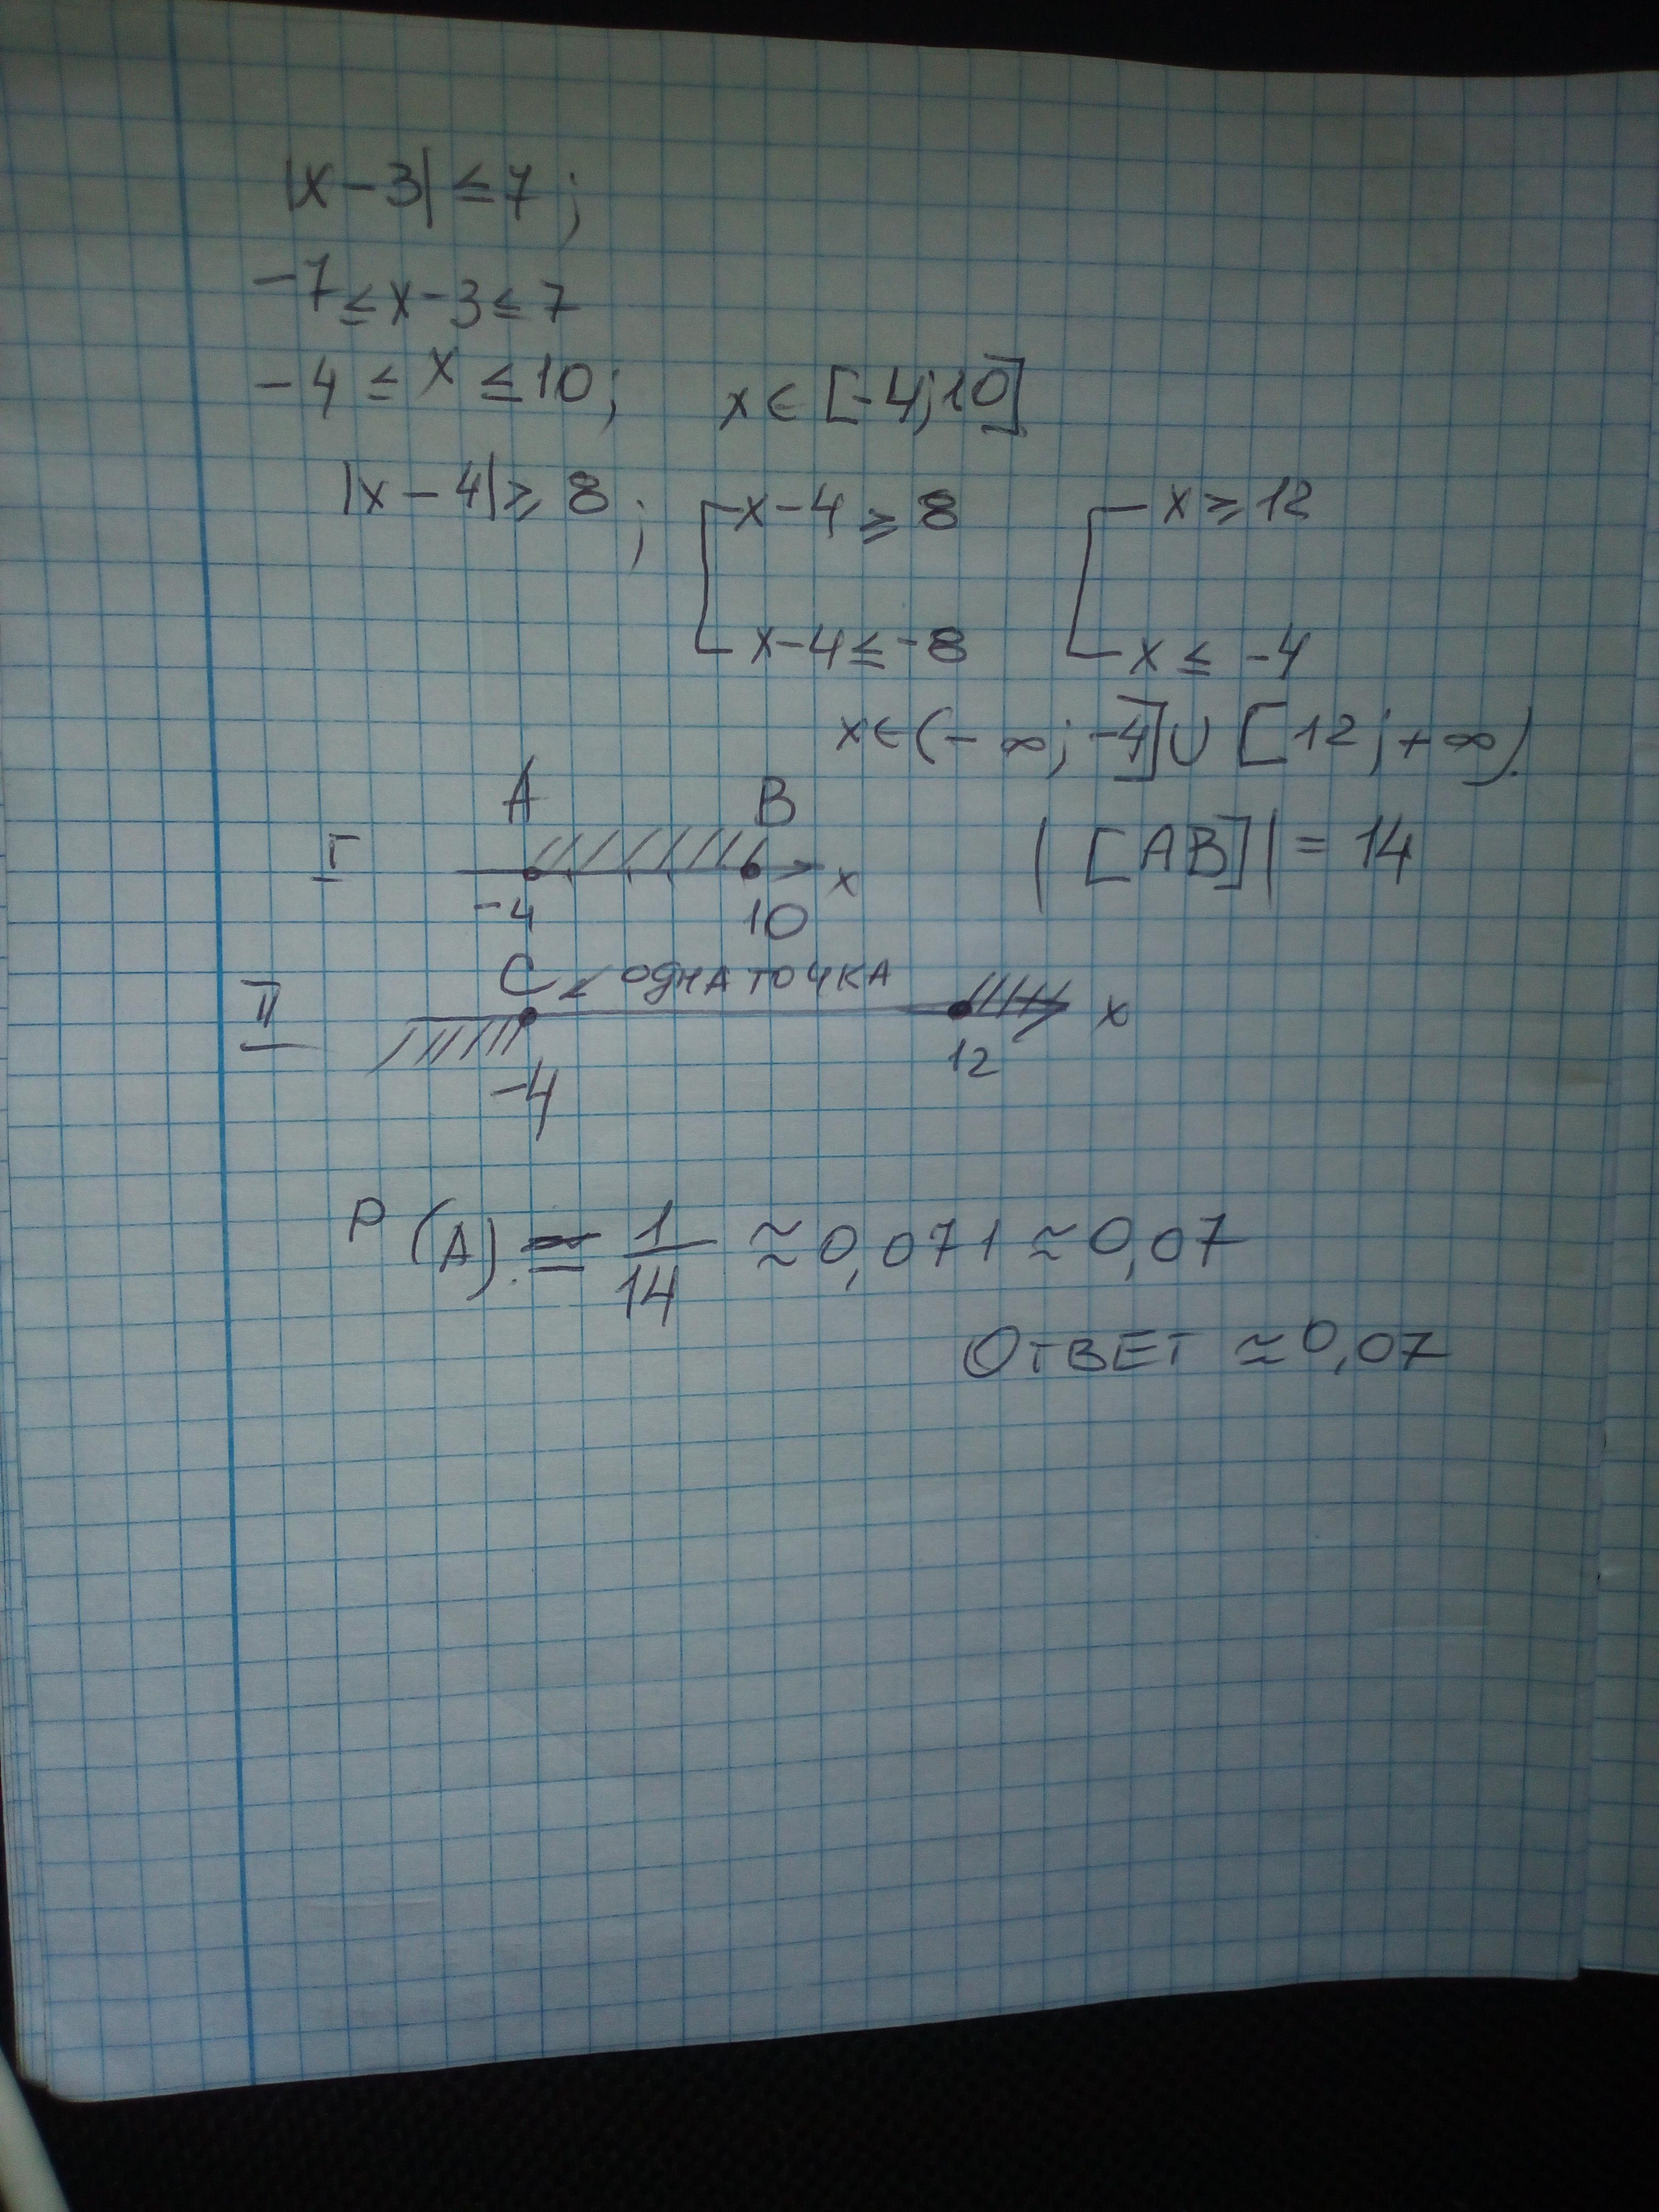 |x-3| ≤ 7;
-7 ≤ x-3 ≤ 7
-4 ≤ x ≤ 10; x ∈ [-4;10]
|x-4| ≥ 8; [ x-4 ≥ 8 [ x ≥ 12
x-4 ≤ -8 x ≤ -4
x ∈ (-∞; -4] ∪ [12; +∞).
A B
I x |[AB]| = 14
-4 10
C ОДНА ТОЧКА
II x
-4 12
P(A) = 1/14 ≈ 0,071 ≈ 0,07
ОТВЕТ ≈ 0,07